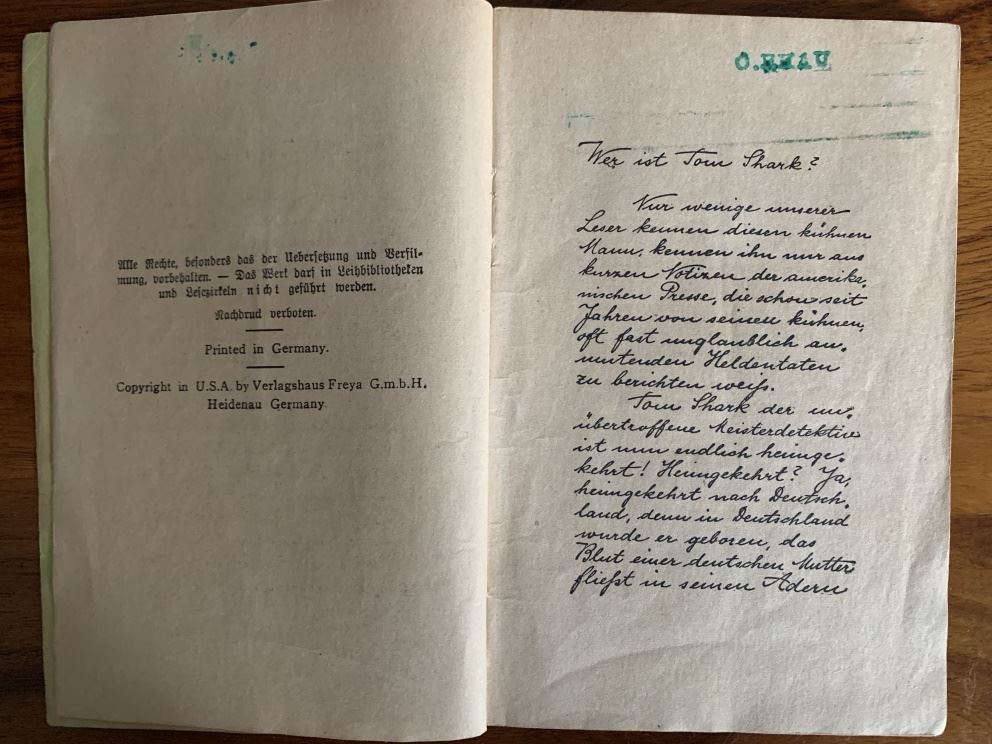 Alle Rechte, besonders das der Uebersetzung und Verfil-
mung, vorbehalten. — Das Werk darf in Leihbibliotheken
und Lesezirkeln nicht geführt werden.
Nachdruck verboten.
Printed in Germany.
Copyright in U.S.A. by Verlagshaus Freya G.m.b.H.
Heidenau Germany
Wer ist Tom Shark?
Nur wenige unserer
Leser kennen diesen kühnen
Mann, kennen ihn nur aus
kurzen Notizen der amerika-
nischen Presse, die schon seit
Jahren von seinen kühnen,
oft fast unglaublich an-
mutenden Heldentaten
zu berichten weiß.
Tom Shark der un-
übertroffene Meisterdetektiv
ist nun endlich heimge-
kehrt! Heimgekehrt? Ja,
heimgekehrt nach Deutsch-
land, denn in Deutschland
wurde er geboren, das
Blut einer deutschen Mutter
fließt in seinen Adern